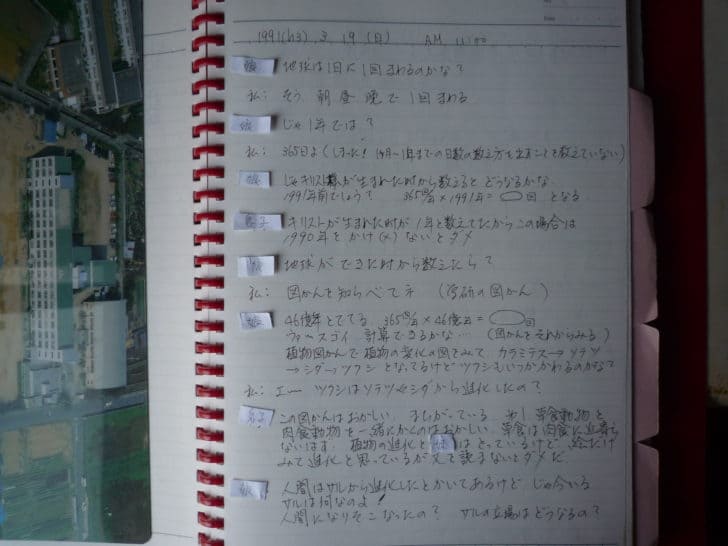 Date
1991(h3) 3. 19 (日) AM 11:00
娘 地球は1日に1回まわるのかな?
私: そう 朝昼晩で1回まわる
娘 じゃ1年では?
私: 365日よ(しまった! 1ヶ月〜1年までの日数の数え方を出すことを教えていない)
娘 じゃキリストが生まれた時から数えるとどうなるかな
1991年前でしょう? 365回/年×1991年= 回 となる
息子 キリストが生まれた時が1年と数えてたからこの場合は
1990年をかけ(×)ないとダメ
娘 地球ができた時から数えたら?
私: 図かんを知らべてネ (学研の図かん)
娘 46億年とでてる 365回/年×46億年= 回
スゴイ 計算できるかな… (図かんをそれからみる)
植物図かんで植物の変化の図をみて カラミテス→ソテツ
→シダ→ツクシ となってるけどツクシもいつかかわるのかな?
私: エー ツクシはソテツ←シダから進化したの?
息子 この図かんはおかしい まちがっている 草食動物と
肉食動物を一緒にかくのはおかしい 草食は肉食に近寄ら
ないはず。植物の進化と妹はとっているけど、絵だけ
みて進化と思っているが文を読まないとダメだ.
娘 人間はサルから進化したとかいてあるけど じゃ今いる
サルは何なのよ!
人間になりそこなったの? サルの立場はどうなるの?